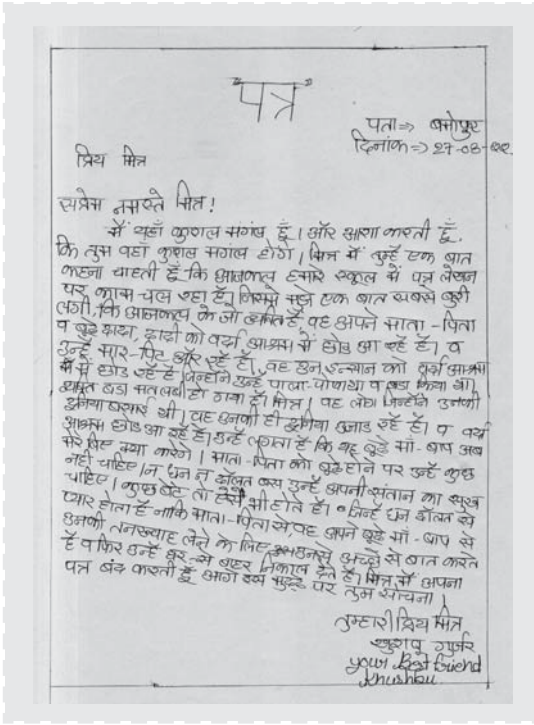 "पत्र"
पता => बमोपुर
दिनांक => 27-08-22
प्रिय मित्र
सप्रेम नमस्ते मित्र!
मैं यहाँ कुशल मगंल हूँ। और आशा करती हूँ
कि तुम वहाँ कुशल मगंल होगे। मित्र मैं तुम्हें एक बात
कहना चाहती हूँ कि आजकल हमारे स्कूल में पत्र लेखन
पर काम चल रहा है। जिसमे मुझे एक बात सबसे बुरी
लगी, कि आजकल के जो व्यक्ति है, वह अपने माता-पिता
व बुढ़े दादा, दादी को वर्द्धा आश्रम में छोड आ रहे है। व
उन्हें मार-पिट और रहे है। वह उन इन्सान को वर्द्धा आश्रम
में छोड रहे है जिन्होंने उन्हें पाला-पोषाया व बडा किया थी।
व्यक्ति बडा मतलबी हो गया है। मित्र। वह लोग जिन्होंने उनकी
दुनिया बसाई थी। वह उनकी ही दुनिया उजाड रहे है। व वर्द्धा
आश्रम छोड आ रहे है। उन्हें लगता है कि यह बुढ़े माँ-बाप अब
मेरे लिए क्या करेगे। माता-पिता को बुढ़े होने पर उन्हें कुछ
नही चाहिए। न धन न दौलत बस उन्हें अपनी संतान का सुख
चाहिए। कुछ बेटे तो ऐसे भी होते है। जिन्हें धन दौलत से
प्यार होता है नाकि माता-पिता से, वह अपने बुढ़े माँ-बाप से
उनकी तनख्याह लेने के लिए उनसे अच्छे से बात करते
है व फिर उन्हें घर-से बहार निकाल देते है। मित्र मैं अपना
पत्र बंद करती हूँ आगे इस मुद्दे पर तुम सोचना।
तुम्हारी प्रिय मित्र
खुशबु गुर्जर
your Best friend
khushbu